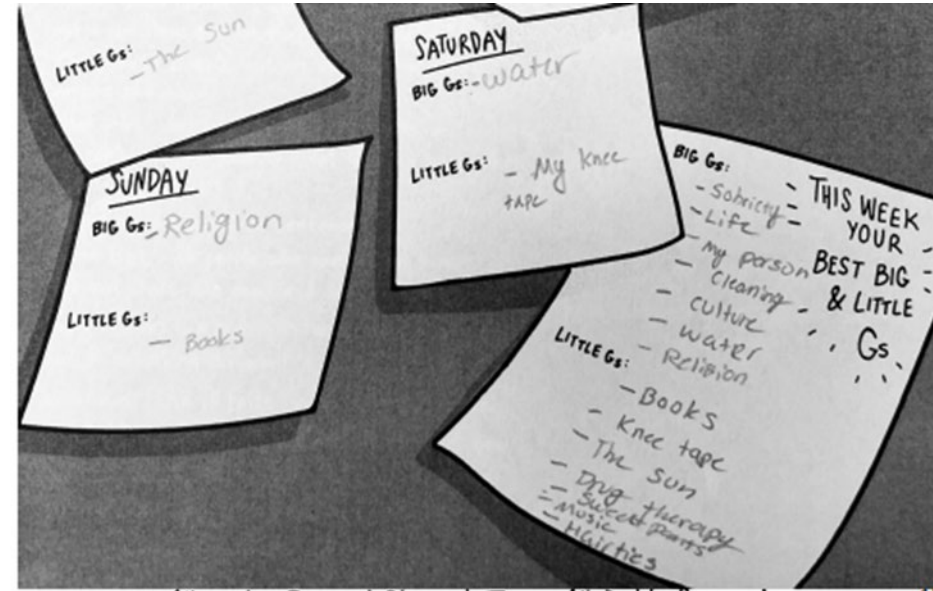 LITTLE Gs:
- The Sun
SATURDAY
BIG Gs: - Water
LITTLE Gs: - My Knee
tape
SUNDAY
BIG Gs: - Religion
LITTLE Gs:
- Books
THIS WEEK
YOUR
BEST BIG
& LITTLE
Gs
BIG Gs:
- Sobriety
- Life
- My person
- Cleaning
- Culture
- Water
- Religion
LITTLE Gs:
- Books
- Knee tape
- The Sun
- Drug therapy
- Sweat pants
- Music
- Hairties